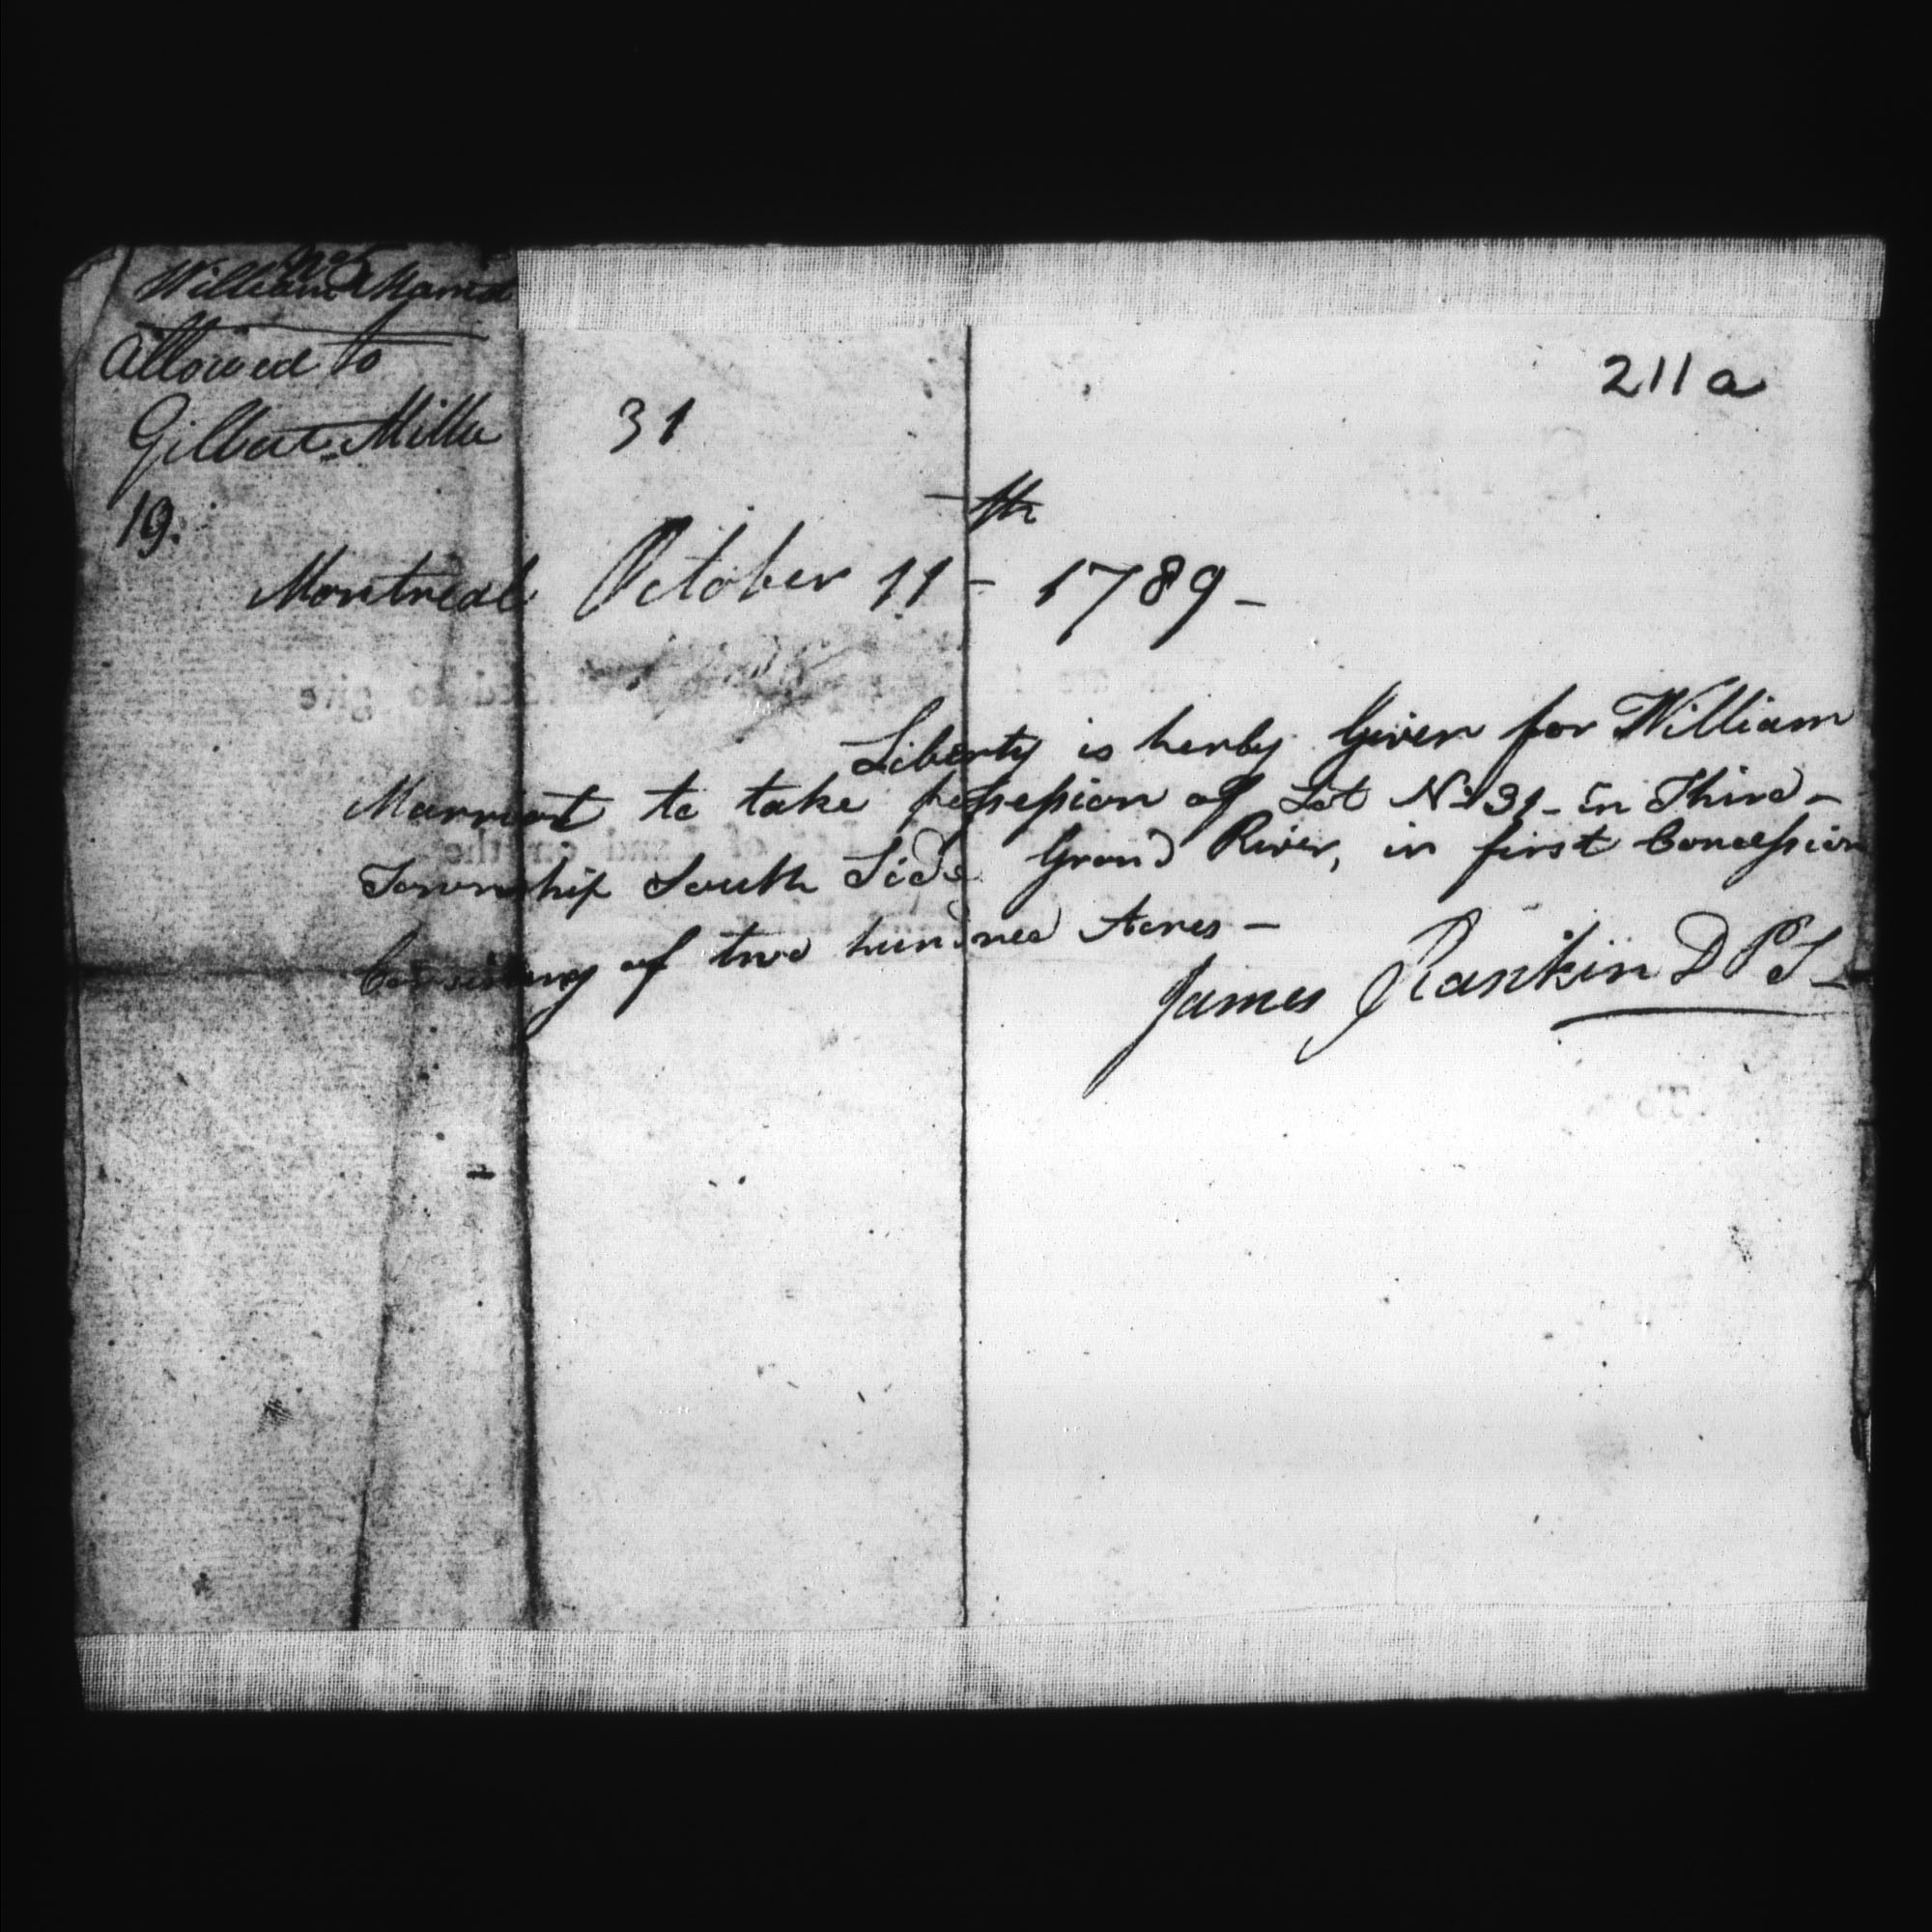 William
Allowed to
Gilbert Miller
19.
31
211 a
th
Montreal October 11 - 1789 -
Liberty is herby Given for William
Marriot to take possession of Lot No 31 - in Third -
Township South Side Grand River, in first Concession
Consisting of two hundred Acres -
James Rankin D P S -